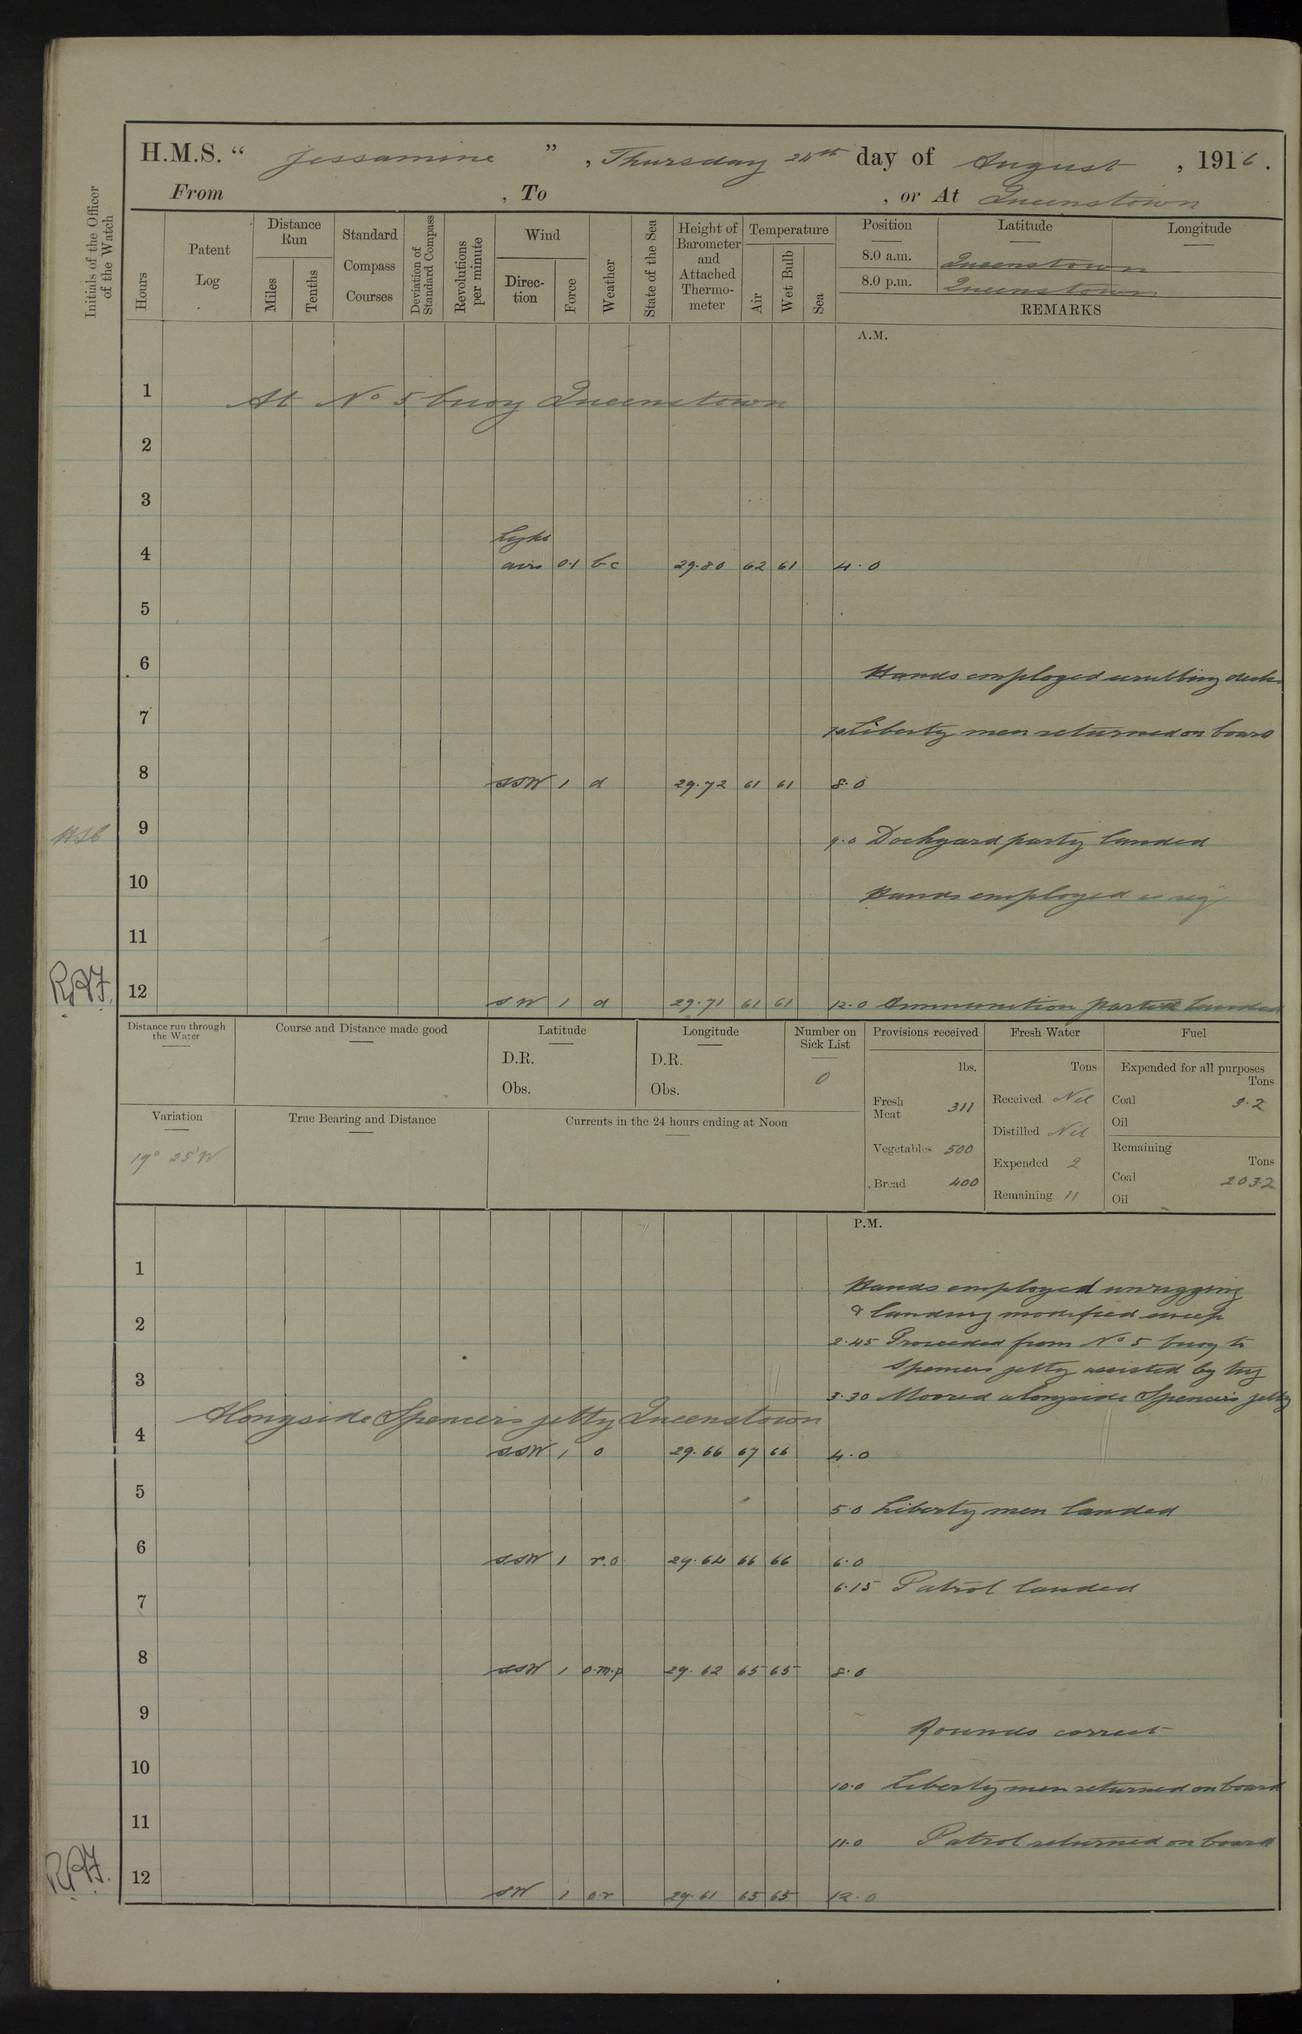 H.M.S. “ Jessamine ” , Thursday 24th day of August , 1916 .
From , To , or At Queenstown
Initials of the Officer of the Watch
Hours
Patent Log
Distance Run
Miles
Tenths
Standard Compass Courses
Deviation of Standard Compass
Revolutions per minute
Wind
Direction
Force
Weather
State of the Sea
Height of Barometer and Attached Thermometer
Temperature
Air
Wet Bulb
Sea
Position Latitude Longitude
8.0 a.m. Queenstown
8.0 p.m. Queenstown
REMARKS
A.M.
1 At No 5 buoy Queenstown
2
3
4 Light airs 0.1 bc 29.80 62 61 4.0
5
6 Hands employed scrubbing decks
7 Liberty men returned on board
8 SSW 1 d 29.72 61 61 8.0
9 9.0 Dockyard party landed
10 Hands employed
11
12 SW 1 d 29.71 61 61 12.0 Ammunition landed
Distance run through the Water
Course and Distance made good
Latitude
D.R.
Obs.
Longitude
D.R.
Obs.
Number on Sick List
0
Provisions received
lbs.
Fresh Meat 311
Vegetables 500
Bread 400
Fresh Water
Tons
Received Nil
Distilled Nil
Expended 2
Remaining 11
Fuel
Expended for all purposes
Tons
Coal 3.2
Oil
Remaining
Tons
Coal 203.2
Oil
Variation
19° 25'W
True Bearing and Distance
Currents in the 24 hours ending at Noon
P.M.
1 Hands employed unrigging
& landing modified sweep
2
2.45 Proceeded from No 5 buoy to
Spencers jetty assisted by tug
3
3.30 Moored alongside Spencers jetty
Alongside Spencers jetty Queenstown
4 SSW 1 o 29.66 67 66 4.0
5 5.0 Liberty men landed
6 SSW 1 r.o 29.64 66 66 6.0
6.15 Patrol landed
7
8 SSW 1 o.m.p 29.62 65 65 8.0
9 Rounds correct
10 10.0 Liberty men returned on board
11 11.0 Patrol returned on board
12 SW 1 o.r 29.61 65 65 12.0